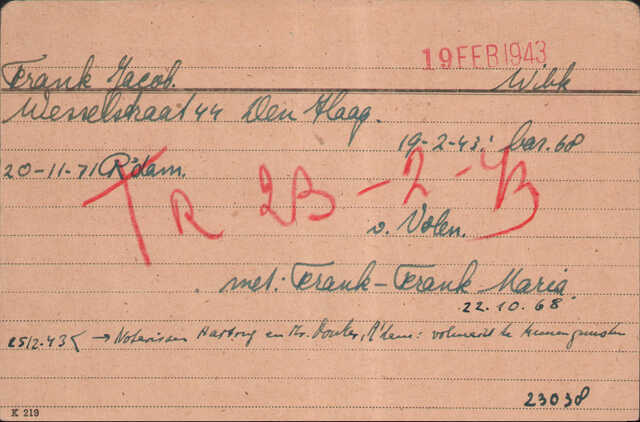 19 FEB 1943
Frank Jacob. Wibk
Wesselstraat 44 Den Haag.
19-2-43: bar. 68
20-11-71 R'dam.
TR 23-2-43
v. Volen.
met: Frank-Frank Maria
22.10.68.
25/2-43 → Notarissen Hartog en Mr. : volmacht te
23038
K 219